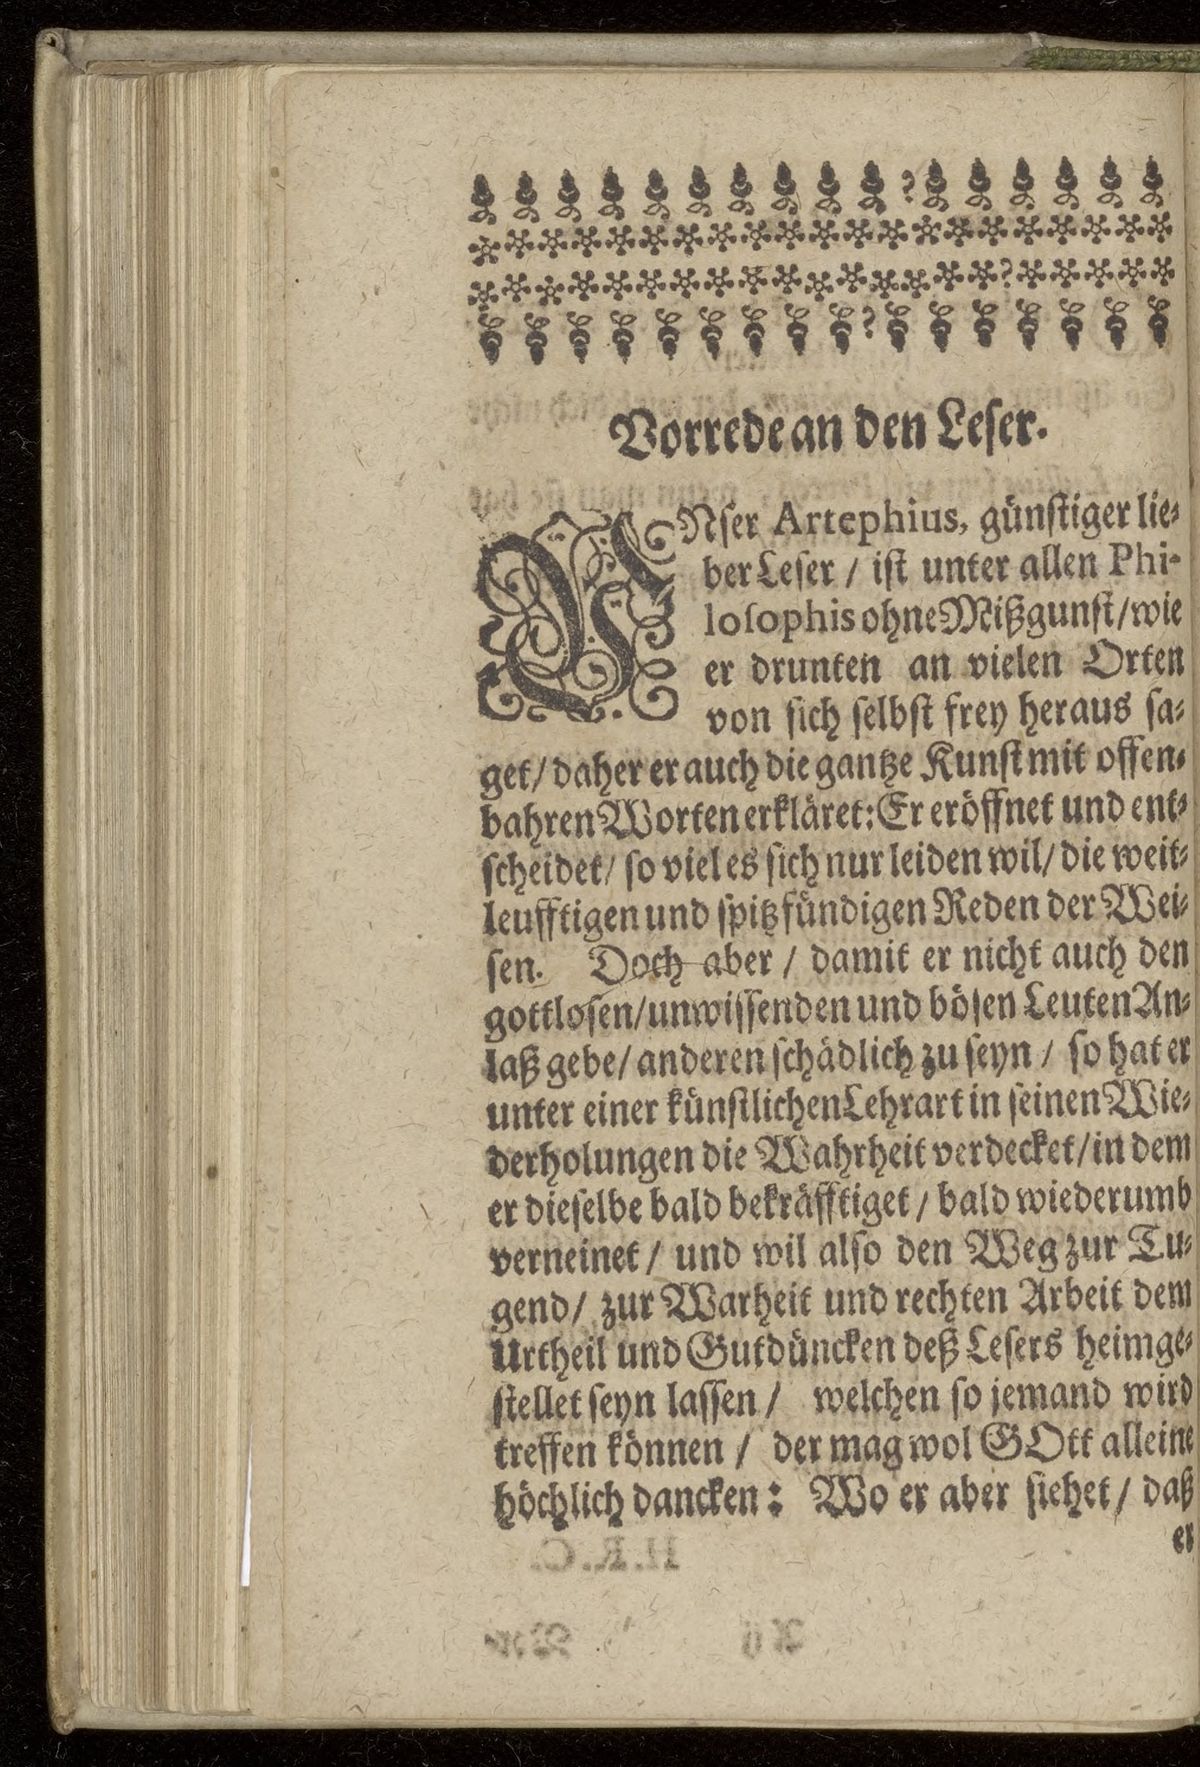 Vorrede an den Leser.
UNser Artephius, günstiger lie-
ber Leser / ist unter allen Phi-
losophis ohne Mißgunst / wie
er drunten an vielen Orten
von sich selbst frey heraus sa-
get / daher er auch die gantze Kunst mit offen-
bahren Worten erkläret: Er eröffnet und ent-
scheidet / so viel es sich nur leiden wil / die weit-
leufftigen und spitzfündigen Reden der Wei-
sen. Doch aber / damit er nicht auch den
gottlosen / unwissenden und bösen Leuten An-
laß gebe / anderen schädlich zu seyn / so hat er
unter einer künstlichen Lehrart in seinen Wie-
derholungen die Wahrheit verdecket / in dem
er dieselbe bald bekräfftiget / bald wiederumb
verneinet / und wil also den Weg zur Tu-
gend / zur Warheit und rechten Arbeit dem
Urtheil und Gutdüncken deß Lesers heimge-
stellet seyn lassen / welchen so jemand wird
treffen können / der mag wol GOtt alleine
höchlich dancken: Wo er aber siehet / daß
er